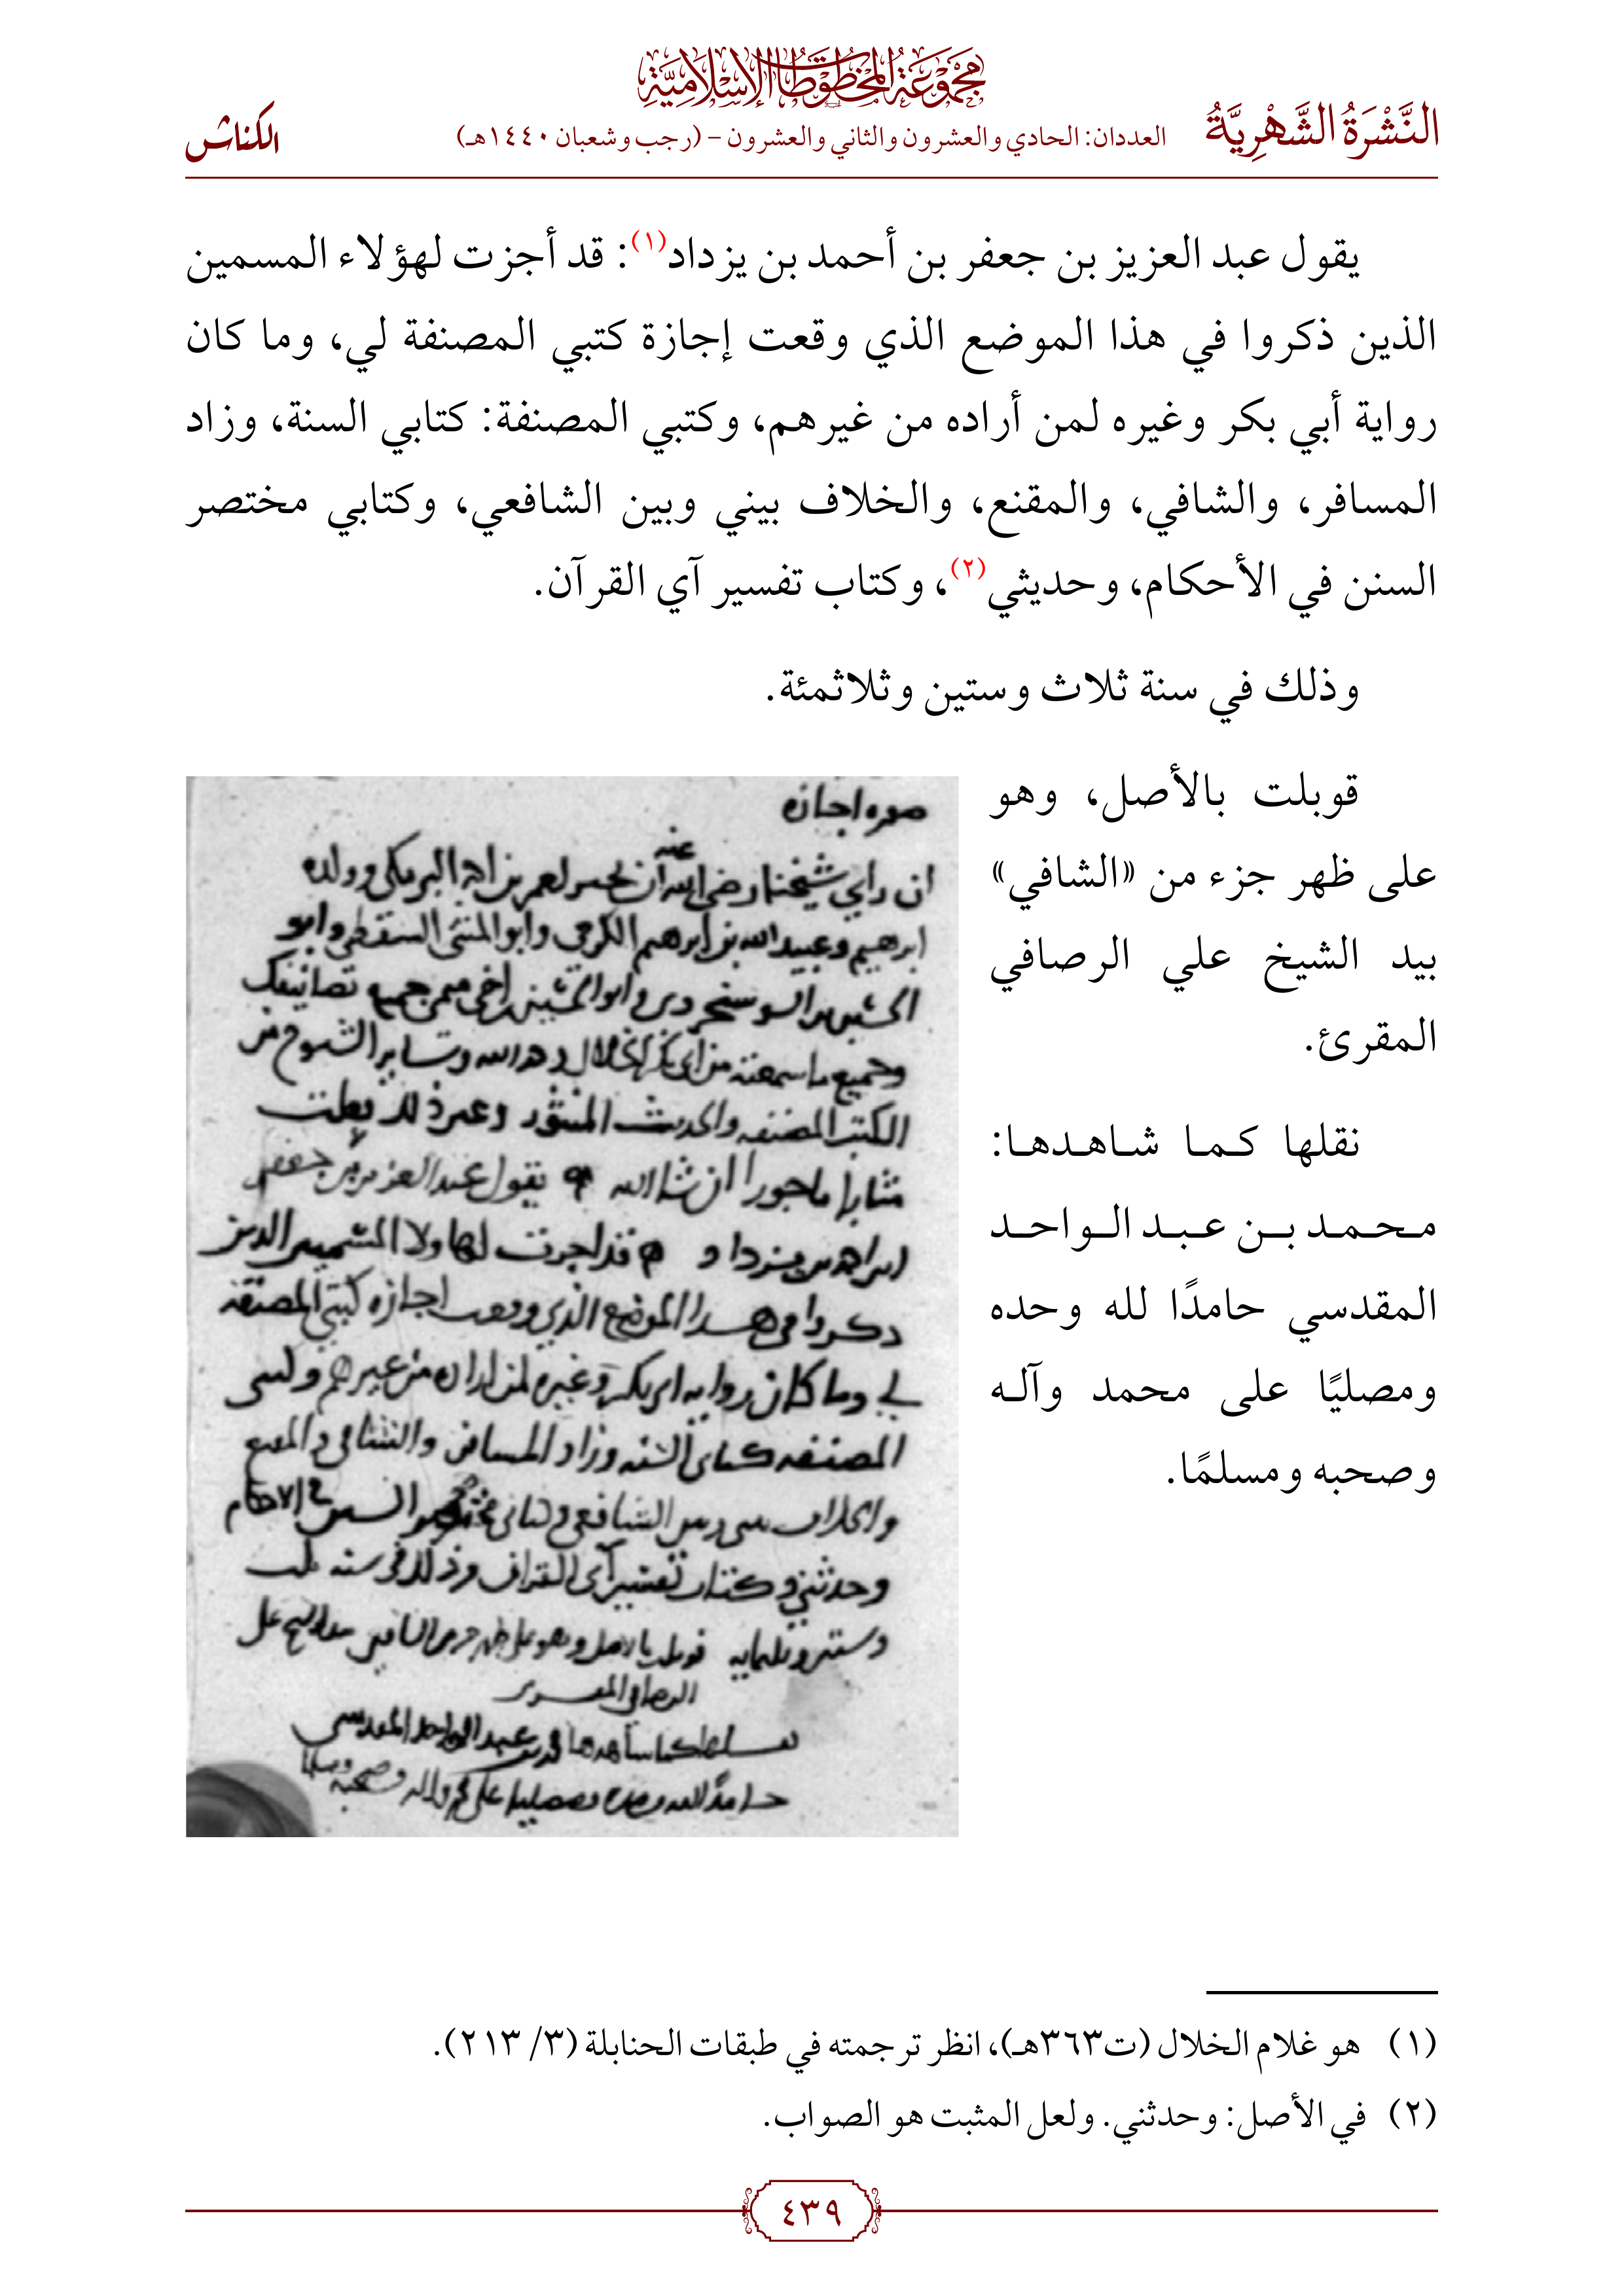 مَجْمُوعَةُ المَخْطُوطَاتِ الإِسْلَامِيَّةِ
النَّشْرَةُ الشَّهْرِيَّةُ
العددان: الحادي والعشرون والثاني والعشرون – (رجب وشعبان ١٤٤٠هـ)
الكناش
يقول عبد العزيز بن جعفر بن أحمد بن يزداد(١): قد أجزت لهؤلاء المسمين
الذين ذكروا في هذا الموضع الذي وقعت إجازة كتبي المصنفة لي، وما كان
رواية أبي بكر وغيره لمن أراده من غيرهم، وكتبي المصنفة: كتابي السنة، وزاد
المسافر، والشافي، والمقنع، والخلاف بيني وبين الشافعي، وكتابي مختصر
السنن في الأحكام، وحديثي(٢)، وكتاب تفسير آي القرآن.
وذلك في سنة ثلاث وستين وثلاثمئة.
قوبلت بالأصل، وهو
على ظهر جزء من «الشافي»
بيد الشيخ علي الرصافي
المقرئ.
نقلها كما شاهدها:
محمد بن عبد الواحد
المقدسي حامدًا لله وحده
ومصليًا على محمد وآله
وصحبه ومسلمًا.
صوره اجازه
ان راي شيخنا رضي الله عنه ان يجيز لعمر بن احمد البرمكي وولده
ابرهيم وعبيد الله بن ابرهيم الكرجي وابو المثنى السقطي وابو
الحسين السوسنجردي وابو الحسين اخي ميمي جميع تصانيفك
وجميع ما سمعته من ابي بكر الخلال رحمه الله وساير الشيوخ من
الكتب المصنفه والحديث المنثور وغير ذلك فعلت
مثابا ماجورا ان شا الله يقول عبد العزيز بن جعفر
بن احمد بن يزداد قد اجزت لهاولا المسمين الذين
ذكروا في هذا الموضع الذي وقعت اجازه كتبي المصنفه
لي وما كان روايه ابي بكر وغيره لمن اراده من غيرهم وكتبي
المصنفه كتابي السنه وزاد المسافر والشافي والمقنع
والخلاف بيني وبين الشافعي وكتابي مختصر السنن في الاحكام
وحدثني وكتاب تفسير آي القران وذلك في سنه ثلث
وستين وثلثمايه قوبلت بالاصل وهو على ظهر جزء من الشافي بيد الشيخ علي
الرصافي المقرئ
نقلها كما شاهدها محمد بن عبد الواحد المقدسي
حامدًا لله وحده ومصليا على محمد واله وصحبه ومسلما
(١) هو غلام الخلال (ت٣٦٣هـ)، انظر ترجمته في طبقات الحنابلة (٣/ ٢١٣).
(٢) في الأصل: وحدثني. ولعل المثبت هو الصواب.
٤٣٩